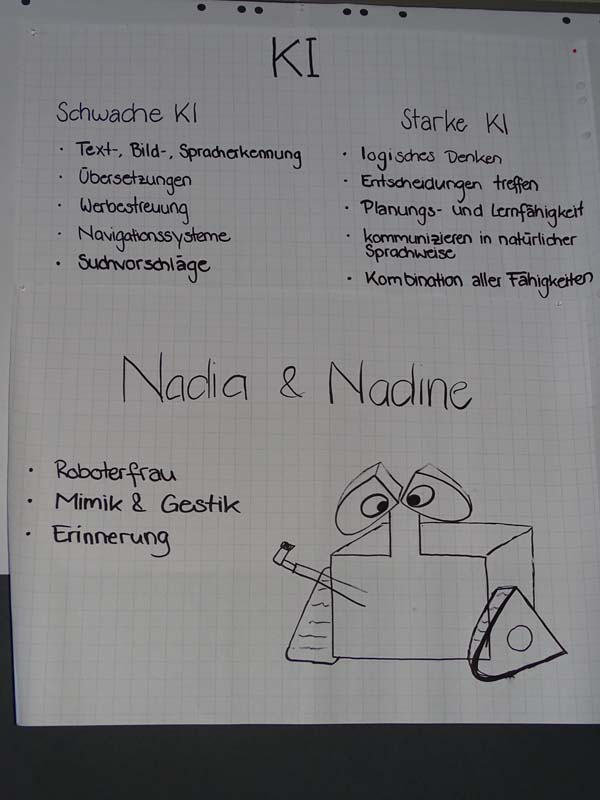 KI
Schwache KI
· Text-, Bild-, Spracherkennung
· Übersetzungen
· Werbestreuung
· Navigationssysteme
· Suchvorschläge
Starke KI
· logisches Denken
· Entscheidungen treffen
· Planungs- und Lernfähigkeit
· kommunizieren in natürlicher
Sprachweise
· Kombination aller Fähigkeiten
Nadia & Nadine
· Roboterfrau
· Mimik & Gestik
· Erinnerung